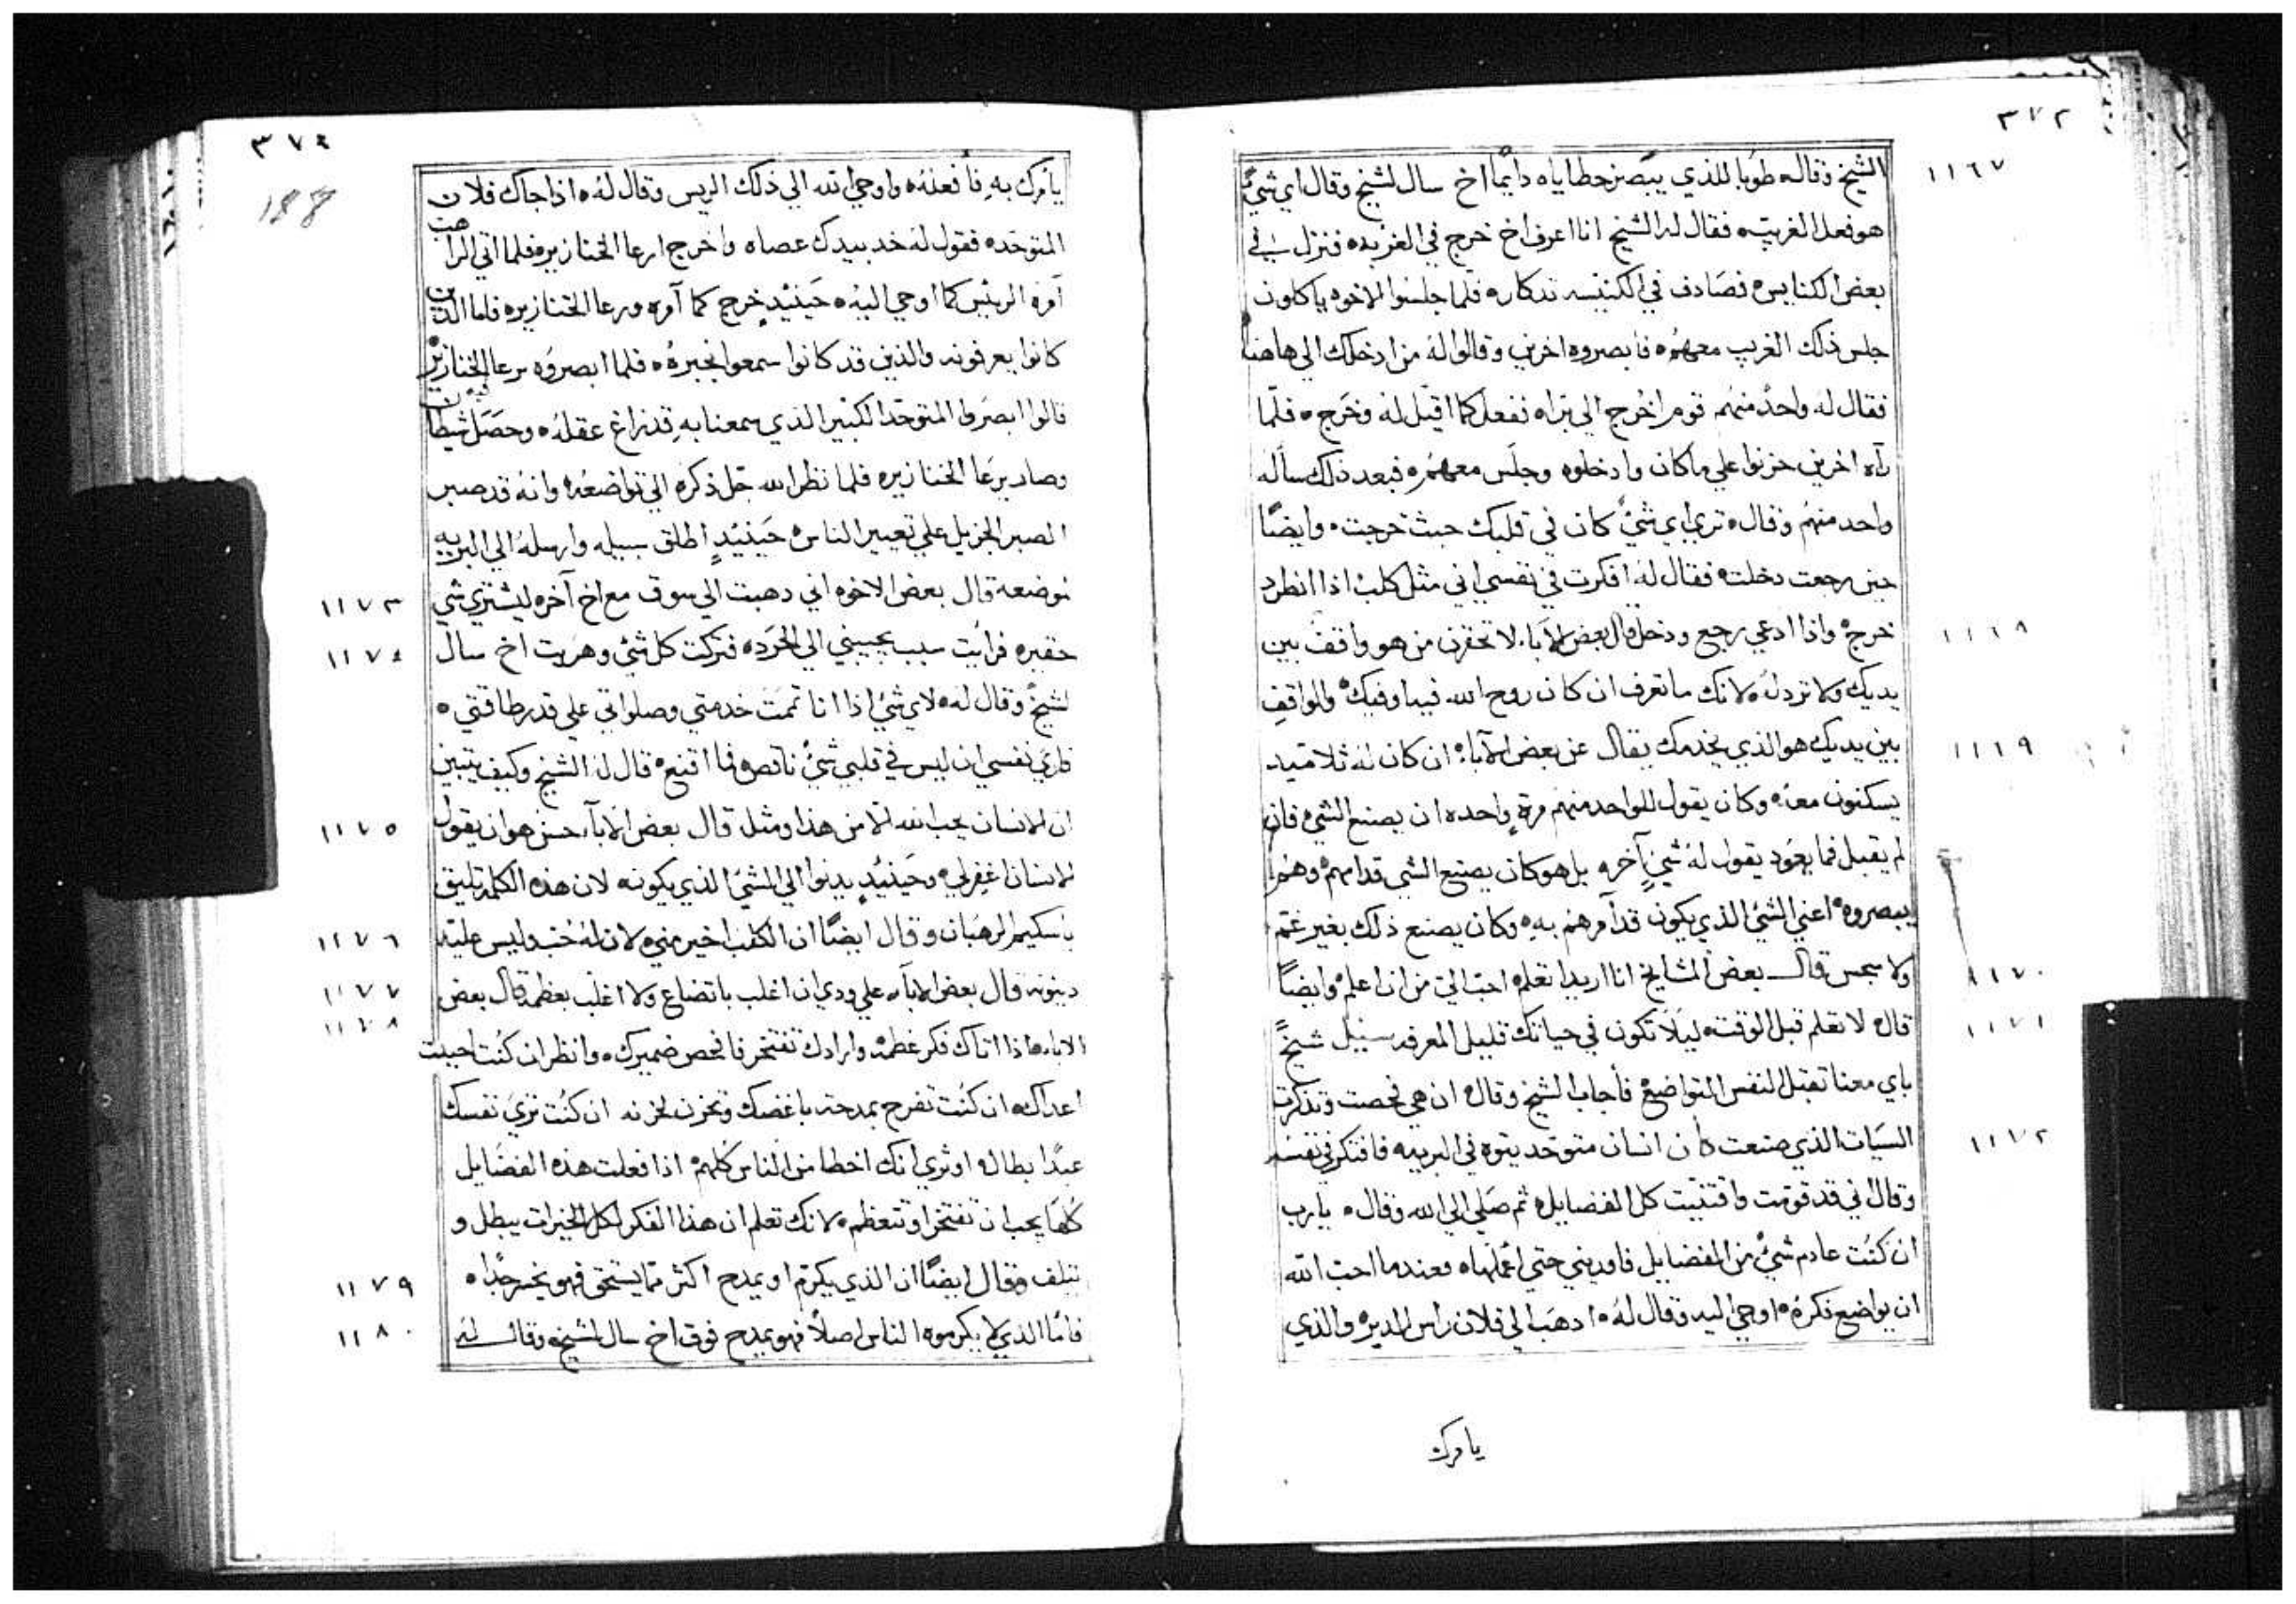 ٣٧٢
الشيخ وقال طوبا للذي يبصر خطاياه دايمًا اخ سال لشيخ وقال اي شي ١١٦٧
هو فعل الغريب فقال له الشيخ انا اعرف اخ خرج في الغربه فنزل في
بعض الكنايس فصادف في الكنيسه تدكار فلما جلسوا الاخوه ياكلون
جلس ذلك الغريب معهم فابصروه اخرين وقالوا له من ادخلك الي هاهنا
فقال له واحد منهم قوم اخرج الي برا ففعل كما اقيل له وخرج فلما
راه اخرين حزنوا علي ما كان وادخلوه وجلس معهم فبعد ذلك ساله
واحد منهم وقال تري اي شي كان في قلبك حيث خرجت وايضًا
حين رجعت دخلت فقال له افكرت في نفسي اني مثل كلب اذا انطرد
خرج واذا ادعي رجع ودخل قال بعض الاباء لا تحقرن من هو واقف بين ١١٦٨
يديك ولا تردله لانك ما تعرف ان كان روح الله فيه او فيك والواقف
بين يديك هو الذي يخدمك يقال عن بعض الاباء ان كان له تلاميد ١١٦٩
يسكنون معه وكان يقول للواحد منهم مرة واحده ان يصنع الشي فان
لم يقبل فما يعود يقول له شي آخر بل هو كان يصنع الشي قدامهم وهم
يبصروه اعني الشي الذي يكون قد آمرهم به وكان يصنع ذلك بغير غم
ولا سجس قال بعض المشايخ انا اريد اتعلم احب الي من ان اعلم وايضًا ١١٧٠
قال لا تعلم قبل الوقت ليلا تكون في حياتك قليل المعرفه سيل شيخ ١١٧١
باي معنا تقبل النفس التواضع فأجاب الشيخ وقال ان هي فحصت وتذكرت
السيات الذي صنعت كان انسان متوحد يتوه في البريه فافتكر في نفسه ١١٧٢
وقال اني قد قومت واقتنيت كل الفضايل ثم صلي الي الله وقال يا رب
ان كنت عادم شي من الفضايل فاوريني حتي اعملها فعندما احب الله
ان يواضع فكره اوحي اليه وقال له ادهب الي فلان راس الدير والذي
يامرك
٣٧٤
188
يأمرك به فأفعله واوحي الله الي ذلك الريس وقال له اذا جاك فلان
المتوحد فقول له خد بيدك عصاه واخرج ارعا الخنازير فلما اتي الراهب
آمره الرييس كما اوحي اليه حينيد خرج كما آمره ورعا الخنازير فاما الذين
كانوا يعرفونه والذين قد كانوا سمعوا بخبره فلما ابصروه يرعا الخنازير
قالوا ابصروا المتوحد الكبير الذي سمعنا به قد زاغ عقله وحصل فيه شيطان
وصار يرعا الخنازير فلما نظر الله جل ذكره الي تواضعه وانه قد صبر
الصبر الجزيل علي تعيير الناس حينيد اطلق سبيله وارسله الي البريه
موضعه قال بعض الاخوه اني دهبت الي سوق مع اخ آخر ليشتري شي ١١٧٣
حقير فرايت سبب يجيبني الي الحرد فتركت كل شي وهربت اخ سال ١١٧٤
لشيخ وقال له لاي شي اذا انا تممت خدمتي وصلواتي علي قدر طاقتي
فاري نفسي ان ليس في قلبي شي ناقص فما اقنع قال له الشيخ وكيف يتبين
ان الانسان يحب الله الا من هذا ومثل قال بعض الاباء حسن هو ان يقول ١١٧٥
الانسان اغفرلي وحينيد يدنوا الي الشي الذي يكونه لان هذه الكلمه تليق
باسكيم الرهبان وقال ايضًا ان الكلب اخير مني لان له حب وليس عليه ١١٧٦
دينونه قال بعض الاباء علي ودي ان اغلب باتضاع ولا اغلب بعظمه قال بعض ١١٧٧
الاباء اذا اتاك فكر عظمه وارادك تفتخر فافحص ضميرك وانظر ان كنت احببت ١١٧٨
اعداك ان كنت تفرح بمدحة باغضك وتحزن لحزنه ان كنت تري نفسك
عبدًا بطال او تري انك اخطا من الناس كلهم اذا فعلت هذه الفضايل
كلها يجب ان تفتخر او تتعظم لانك تعلم ان هذا الفكر لكل الخيرات يبطل و
يتلف وقال ايضًا ان الذي يكرم او يمدح اكثر مما يستحق فهو يخسر جدًا ١١٧٩
فاما الذي لا يكرموه الناس اصلًا فهو يمدح فوق اخ سال لشيخ وقال له ١١٨٠